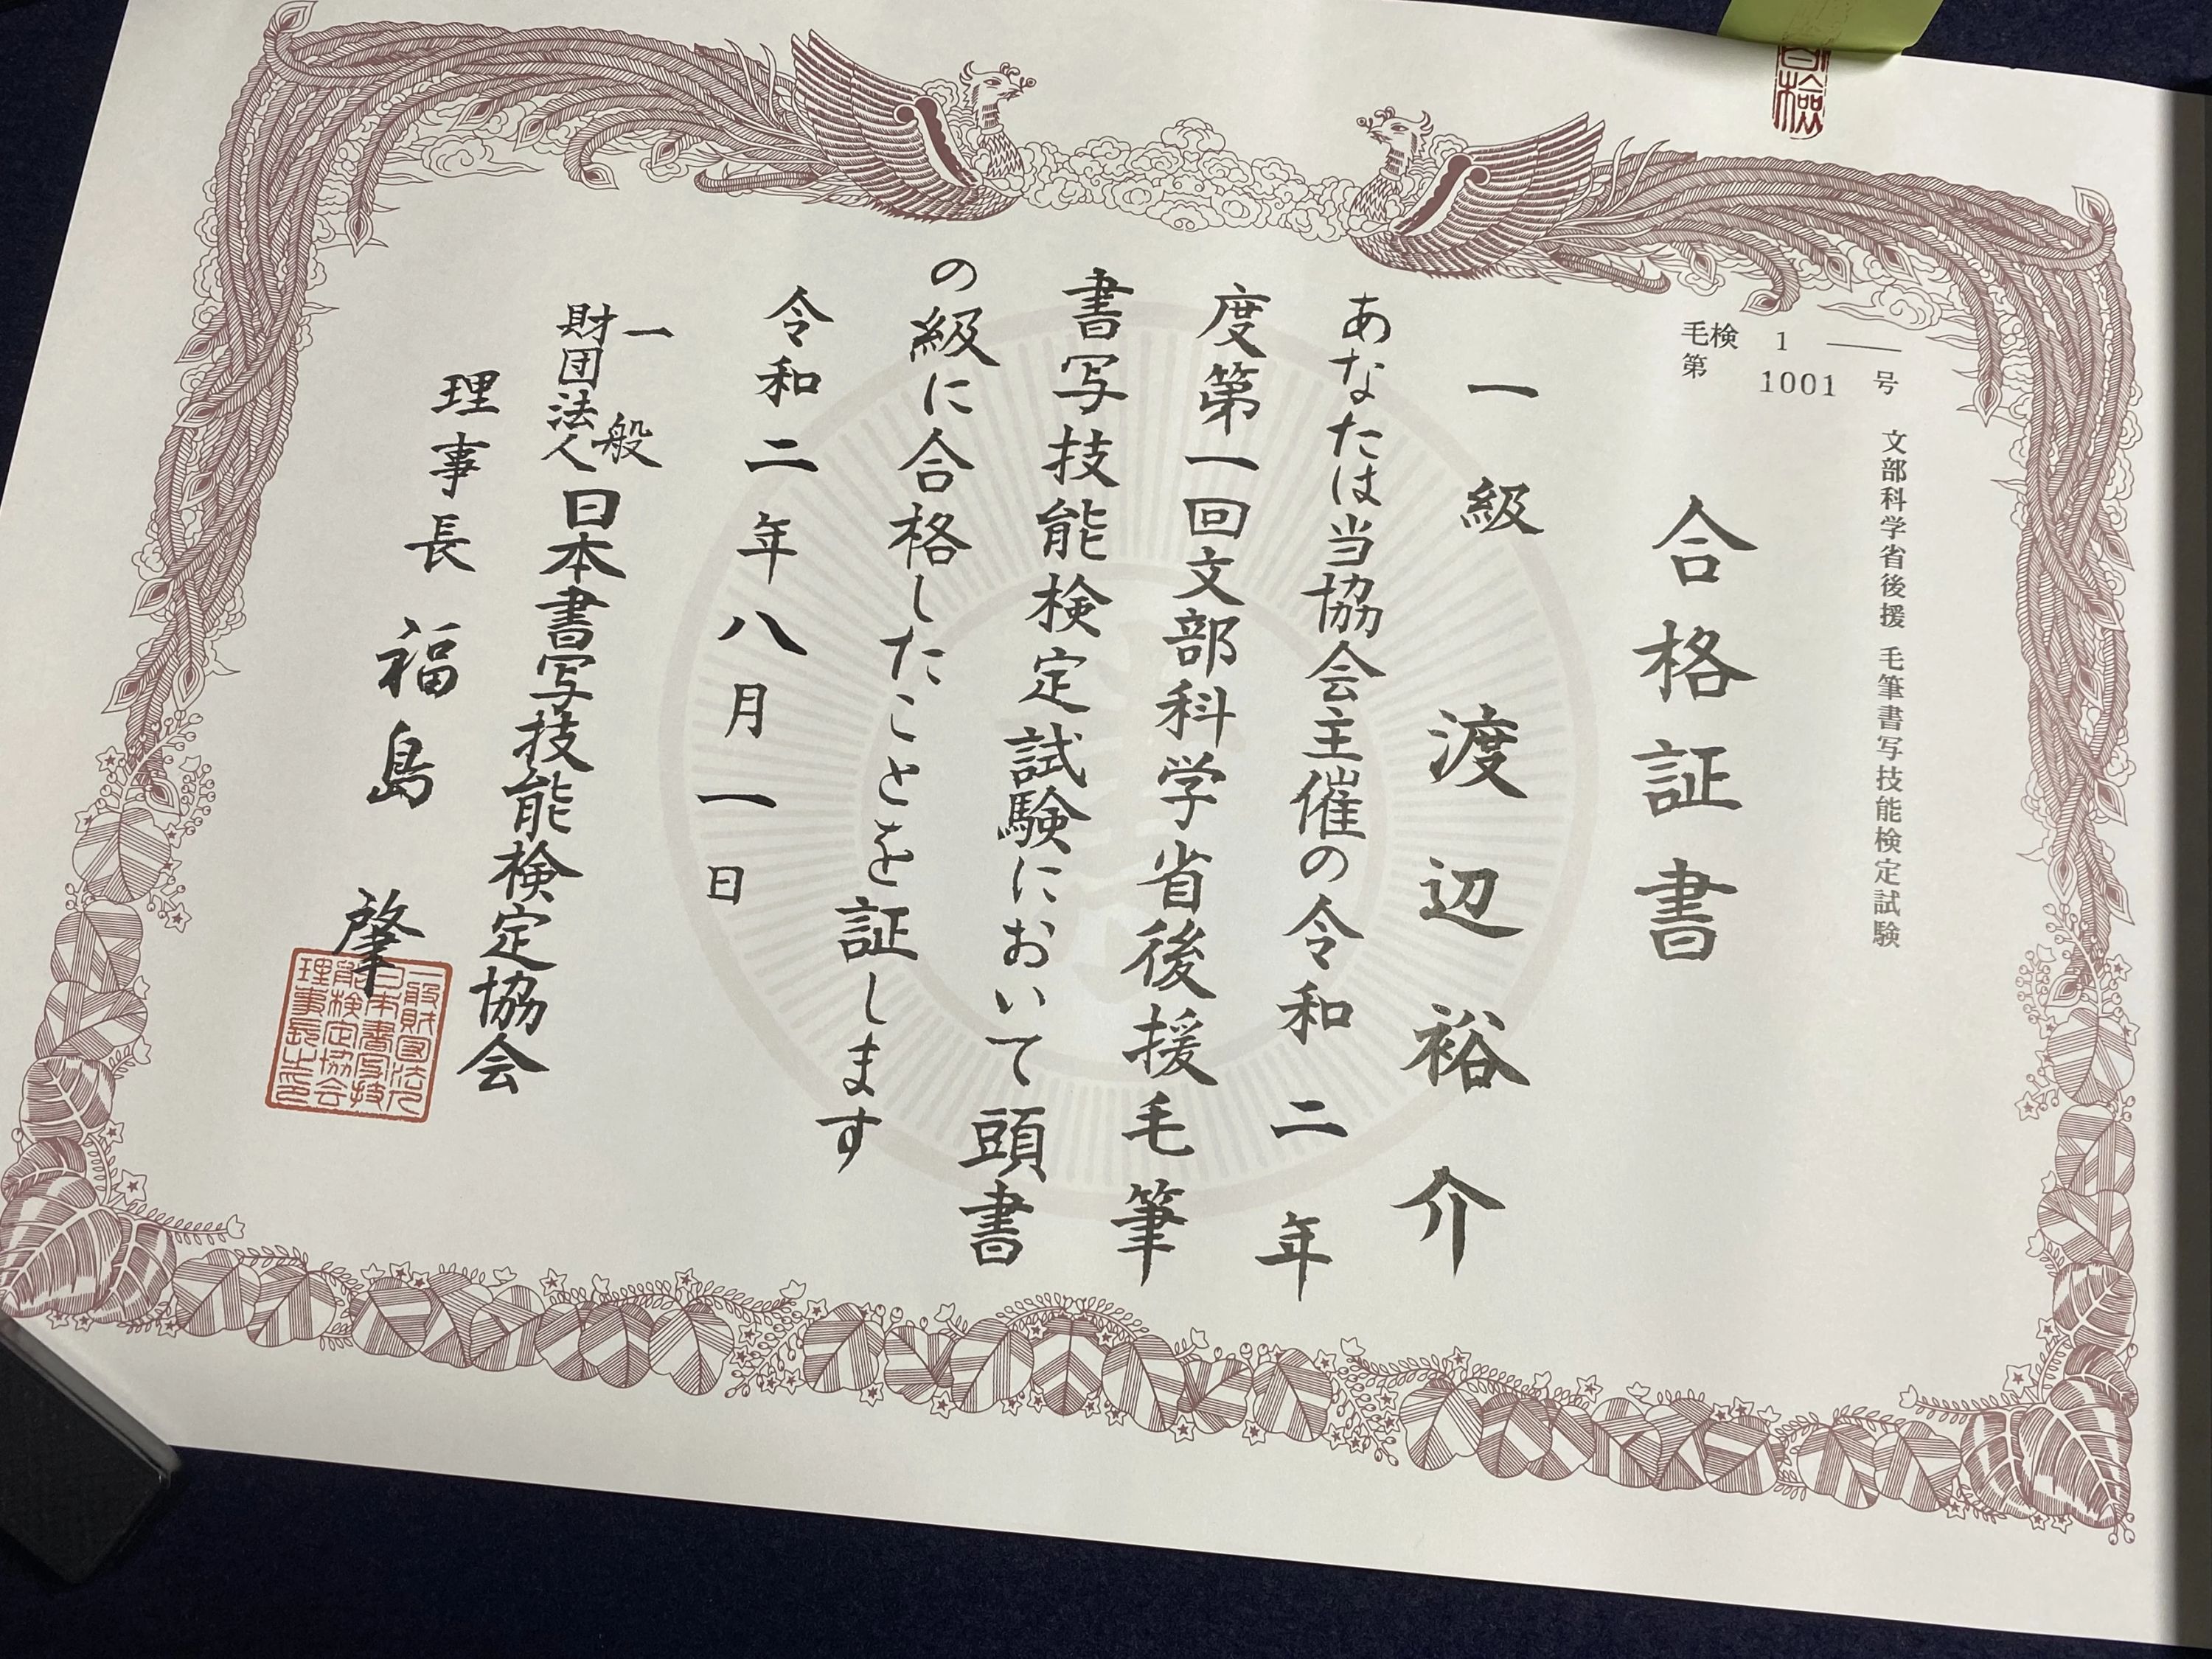 毛検 1 ―
第 1001 号
文部科学省後援 毛筆書写技能検定試験
合格証書
一級 渡辺裕介
あなたは当協会主催の令和二年
度第一回文部科学省後援毛筆
書写技能検定試験において頭書
の級に合格したことを証します
令和二年八月一日
一般財団法人日本書写技能検定協会
理事長 福島 肇
一般財団法人
日本書写技
能検定協会
理事長之印